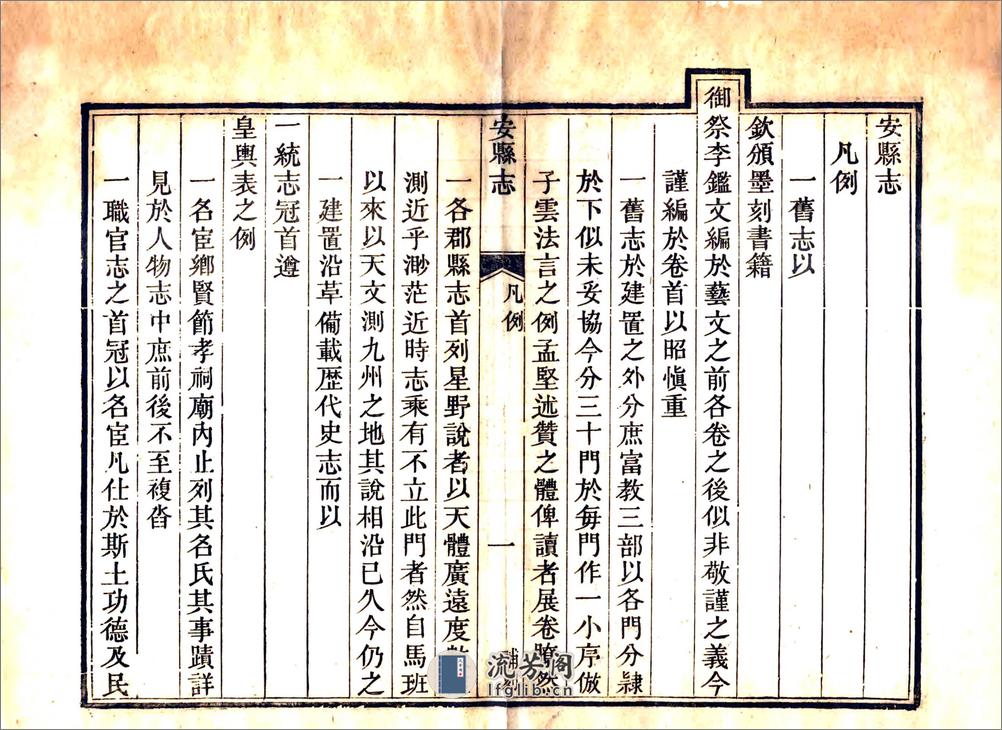 安縣志
凡例
一舊志以
欽頒墨刻書籍
御祭李鑑文編於藝文之前各卷之後似非敬謹之義今
謹編於卷首以昭慎重
一舊志於建置之外分庶富教三部以各門分隸
於下似未妥協今分三十門於每門作一小序倣
子雲法言之例孟堅述贊之體俾讀者展卷瞭然
安縣志
凡例
一
一各郡縣志首列星野說者以天體廣遠度數
測近乎渺茫近時志乘有不立此門者然自馬班
以來以天文測九州之地其說相沿已久今仍之
一建置沿革備載歷代史志而以
一統志冠首遵
皇輿表之例
一名宦鄉賢節孝祠廟內止列其名氏其事蹟詳
見於人物志中庶前後不至複沓
一職官志之首冠以名宦凡仕於斯土功德及民
流芳閣
lfglib.cn